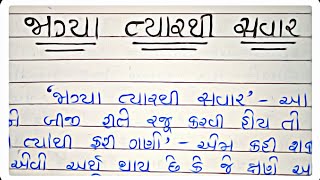 જાગ્યા ત્યારથી સવાર
'જાગ્યા ત્યારથી સવાર' - આ
બીજી રીતે રજૂ કરવી હોય તો
ત્યાંથી ફરી ગણો' - એમ કહી શ
એવો અર્થ થાય છે કે જે ક્ષણે આ